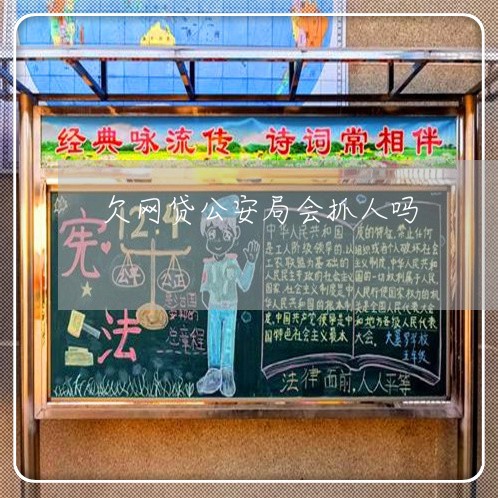 经典咏流传 诗词常相伴
欠网贷公安局会抓人吗
宪法
12.4
公平 公正
总章程
中华人民共和国
是工人阶级领导的,以
工农联盟为基础的
人民民主专政的社会主义
国家,社会主义制度是中
华人民共和国的根本制
度,中国共产党领导是中
国特色社会主义最本
质的特征,禁止任何
组织或者个人破坏社会
主义制度,中华人民共和
国的一切权利属于人民,
人民行使国家权力的机
关是全国人民代表大会
和地方各级人民代表
大会。
五年级
法律面前,人人平等